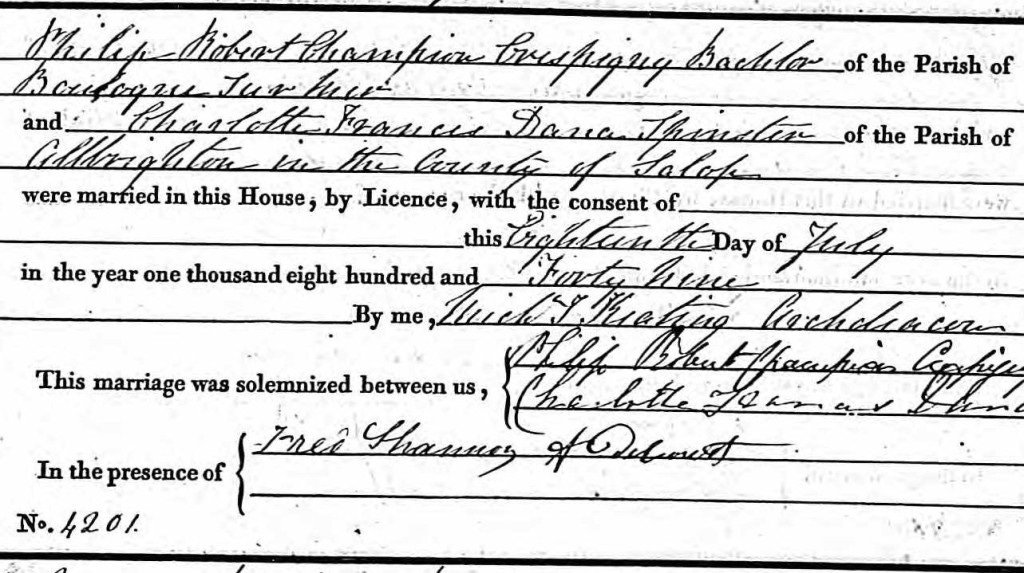 Philip Robert Champion Crespigny Bachlor of the Parish of
Boulogne Sur Mer
and Charlotte Frances Dana Spinster of the Parish of
Allbrighton in the County of Salop
were married in this House, by Licence, with the consent of
this Eighteenth Day of July
in the year one thousand eight hundred and Forty Nine
By me, Mich J Keating Archdeacon
This marriage was solemnized between us, Philip Robert Champion Crespigny
Charlotte Frances Dana
In the presence of Fred Shannon
No. 4201.